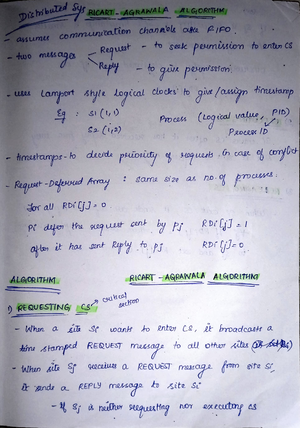 Distributed Sys RICART-AGRAWALA ALGORITHM
- assumes communication channels are FIFO.
- two messages Request - to seek permission to enter CS
Reply - to give permission.
- uses Lamport style logical clocks to give/assign timestamp
Eg : S1 (1,1) Process (logical value, PID)
S2 (1,2) Process ID
- timestamps - to decide priority of requests in case of conflict
- Request-Deferred Array : same size as no. of processes.
For all RDi[j] = 0
Pi defer the request sent by Pj RDi[j] = 1
after it has sent Reply to Pj RDi[j] = 0
ALGORITHM RICART-AGRAWALA ALGORITHM
1) REQUESTING CS critical section
- When a site Si wants to enter CS, it broadcasts a
time stamped REQUEST message to all other sites
- When site Sj receives a REQUEST message from site Si,
it sends a REPLY message to site Si
- If Sj is neither requesting nor executing CS